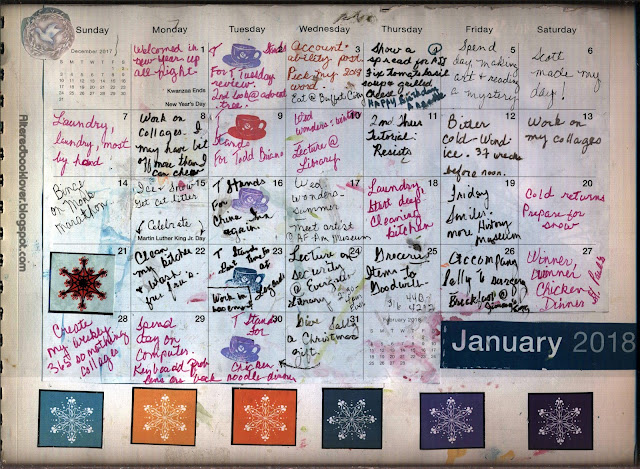 Sunday Monday Tuesday Wednesday Thursday Friday Saturday
December 2017
1
Welcomed in
new year up
all night.
Kwanzaa Ends
New Year's Day
2
T Stands
For T Tuesday
review.
tree.
3
Account
ability post
Pick try 2018
word
Eat @ Buffet City
4
Show a
spread for AJJ
fix tomato basil
soup & grilled
cheese
Happy Birthday
5
Spend
day making
art & reading
a mystery
6
Scott
made my
day!
7
Laundry,
laundry, most
by hand
8
Work on
collages. I
may have bit
off more than I
can chew
9
T
Stands
For Todd
10
Wed
wonders: winter
Lecture @
Library
11
2nd Thur
Tutorial:
Resists
12
Bitter
cold. Wind
ice. 37 wrecks
before noon.
13
Work on
my collages
14
Binge
on Monk
marathon
15
Ice & Snow
Get cat litter
Celebrate
Martin Luther King Jr. Day
16
T Stands
For
China Inn
again.
17
Wed
Wonders
summer
Meet artist
@ Af Am Museum
18
Laundry
Start deep
Cleaning
kitchen
19
Friday
Smiles:
more
Museum
20
Cold returns
Prepare for
snow
21
22
Clean
my kitchen
& Work
23
T Stands
For
Work in
basement
24
Lecture on
Security
@ Evergreen
Library
25
Grocery
Items to
Goodwill
26
Accompany
Sally to surgery
Breakfast @
27
Winner,
winner
Chicken
Dinner
28
Create
my weekly
365 something
collages
29
Spend
day on
computer.
Keyboard prob
lems are back
30
T Stands
For
Chicken &
noodle dinner
31
Give Sally
a Christmas
gift.
February 2018
January 2018
Alteredbooklover.blogspot.com